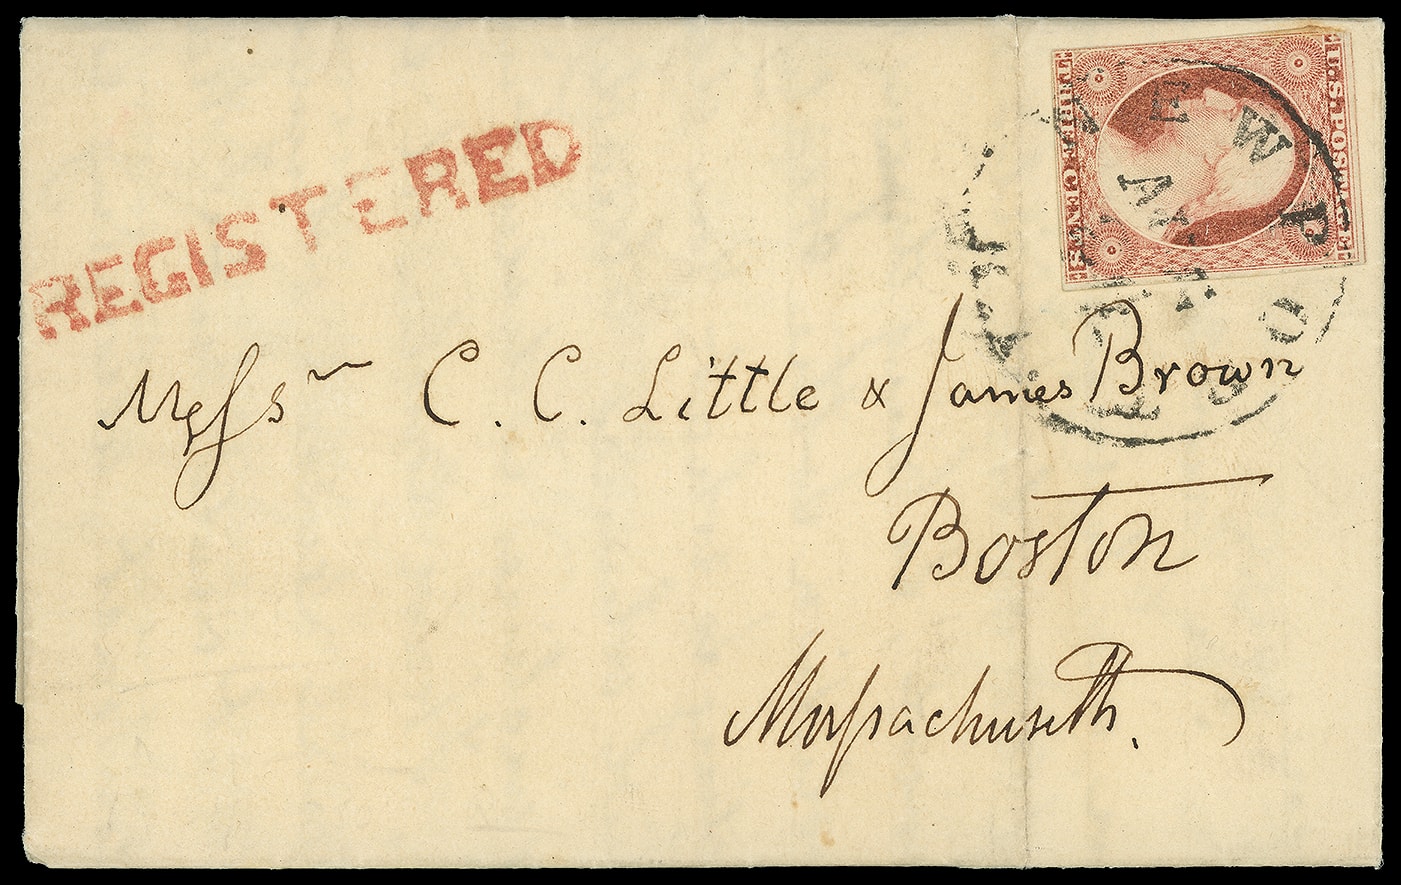 REGISTERED
U.S. POSTAGE
THREE CENTS
NEWPORT
Messrs C. C. Little & James Brown
Boston
Massachusetts.